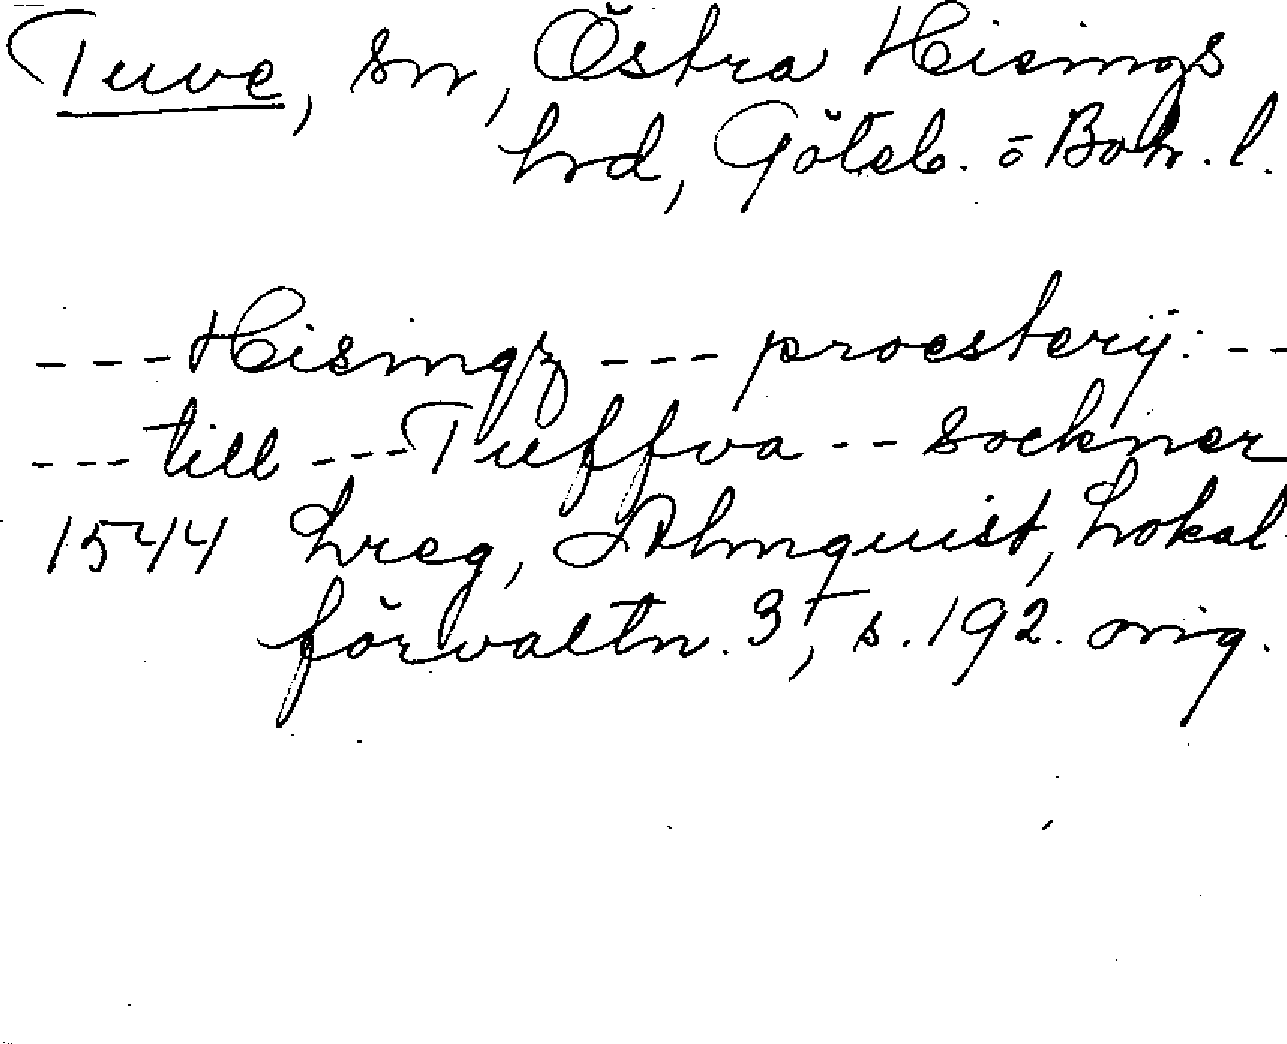 Tuve, sn, Östra Hisings
hrd, Göteb. o Boh. l.
---Hisingz --- proesterij: --
---till ---Tuffva -- sockner
1544 hreg, Almquist, Lokal-
förvaltn. 3, s. 192. orig.